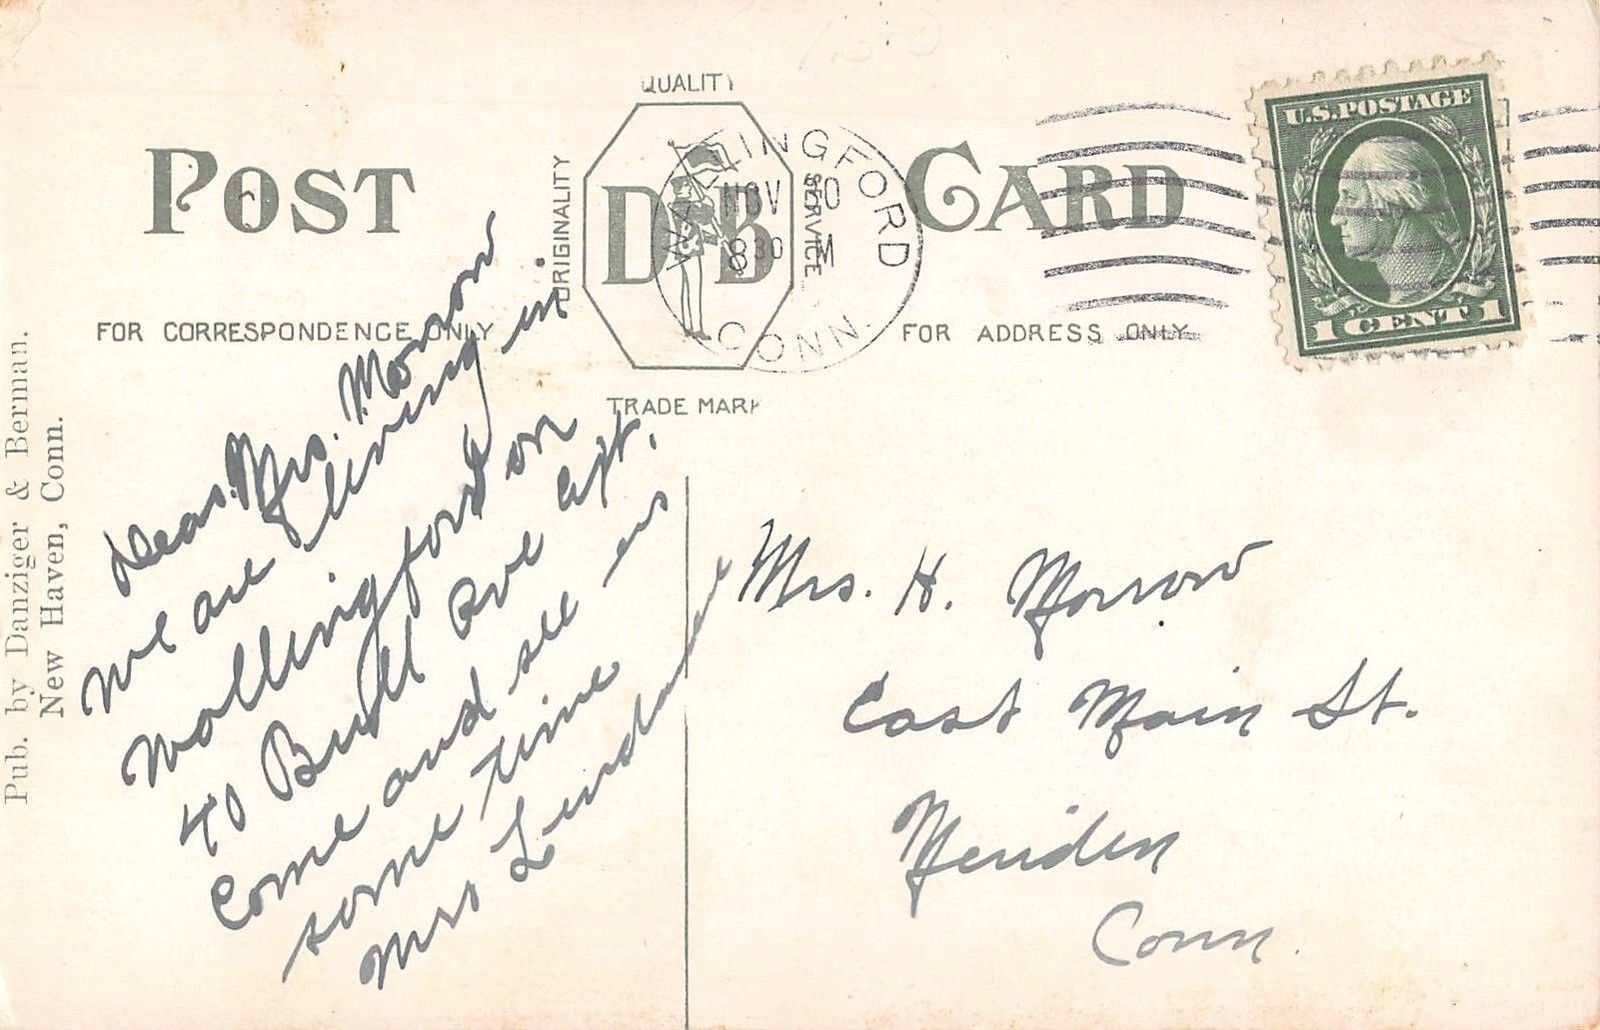 QUALITY
POST CARD
ORIGINALITY
D B
SERVICE
WALLINGFORD
NOV
830 M
CONN.
U.S. POSTAGE
1 CENT 1
FOR CORRESPONDENCE ONLY
FOR ADDRESS ONLY
TRADE MARK
Pub. by Danziger & Berman.
New Haven, Conn.
Dear Mrs. Morrow
We are living in
Wallingford on
40 Ave Apt.
Come and see us
some time
Mrs
Mrs. H. Morrow
East Main St.
Meriden
Conn.